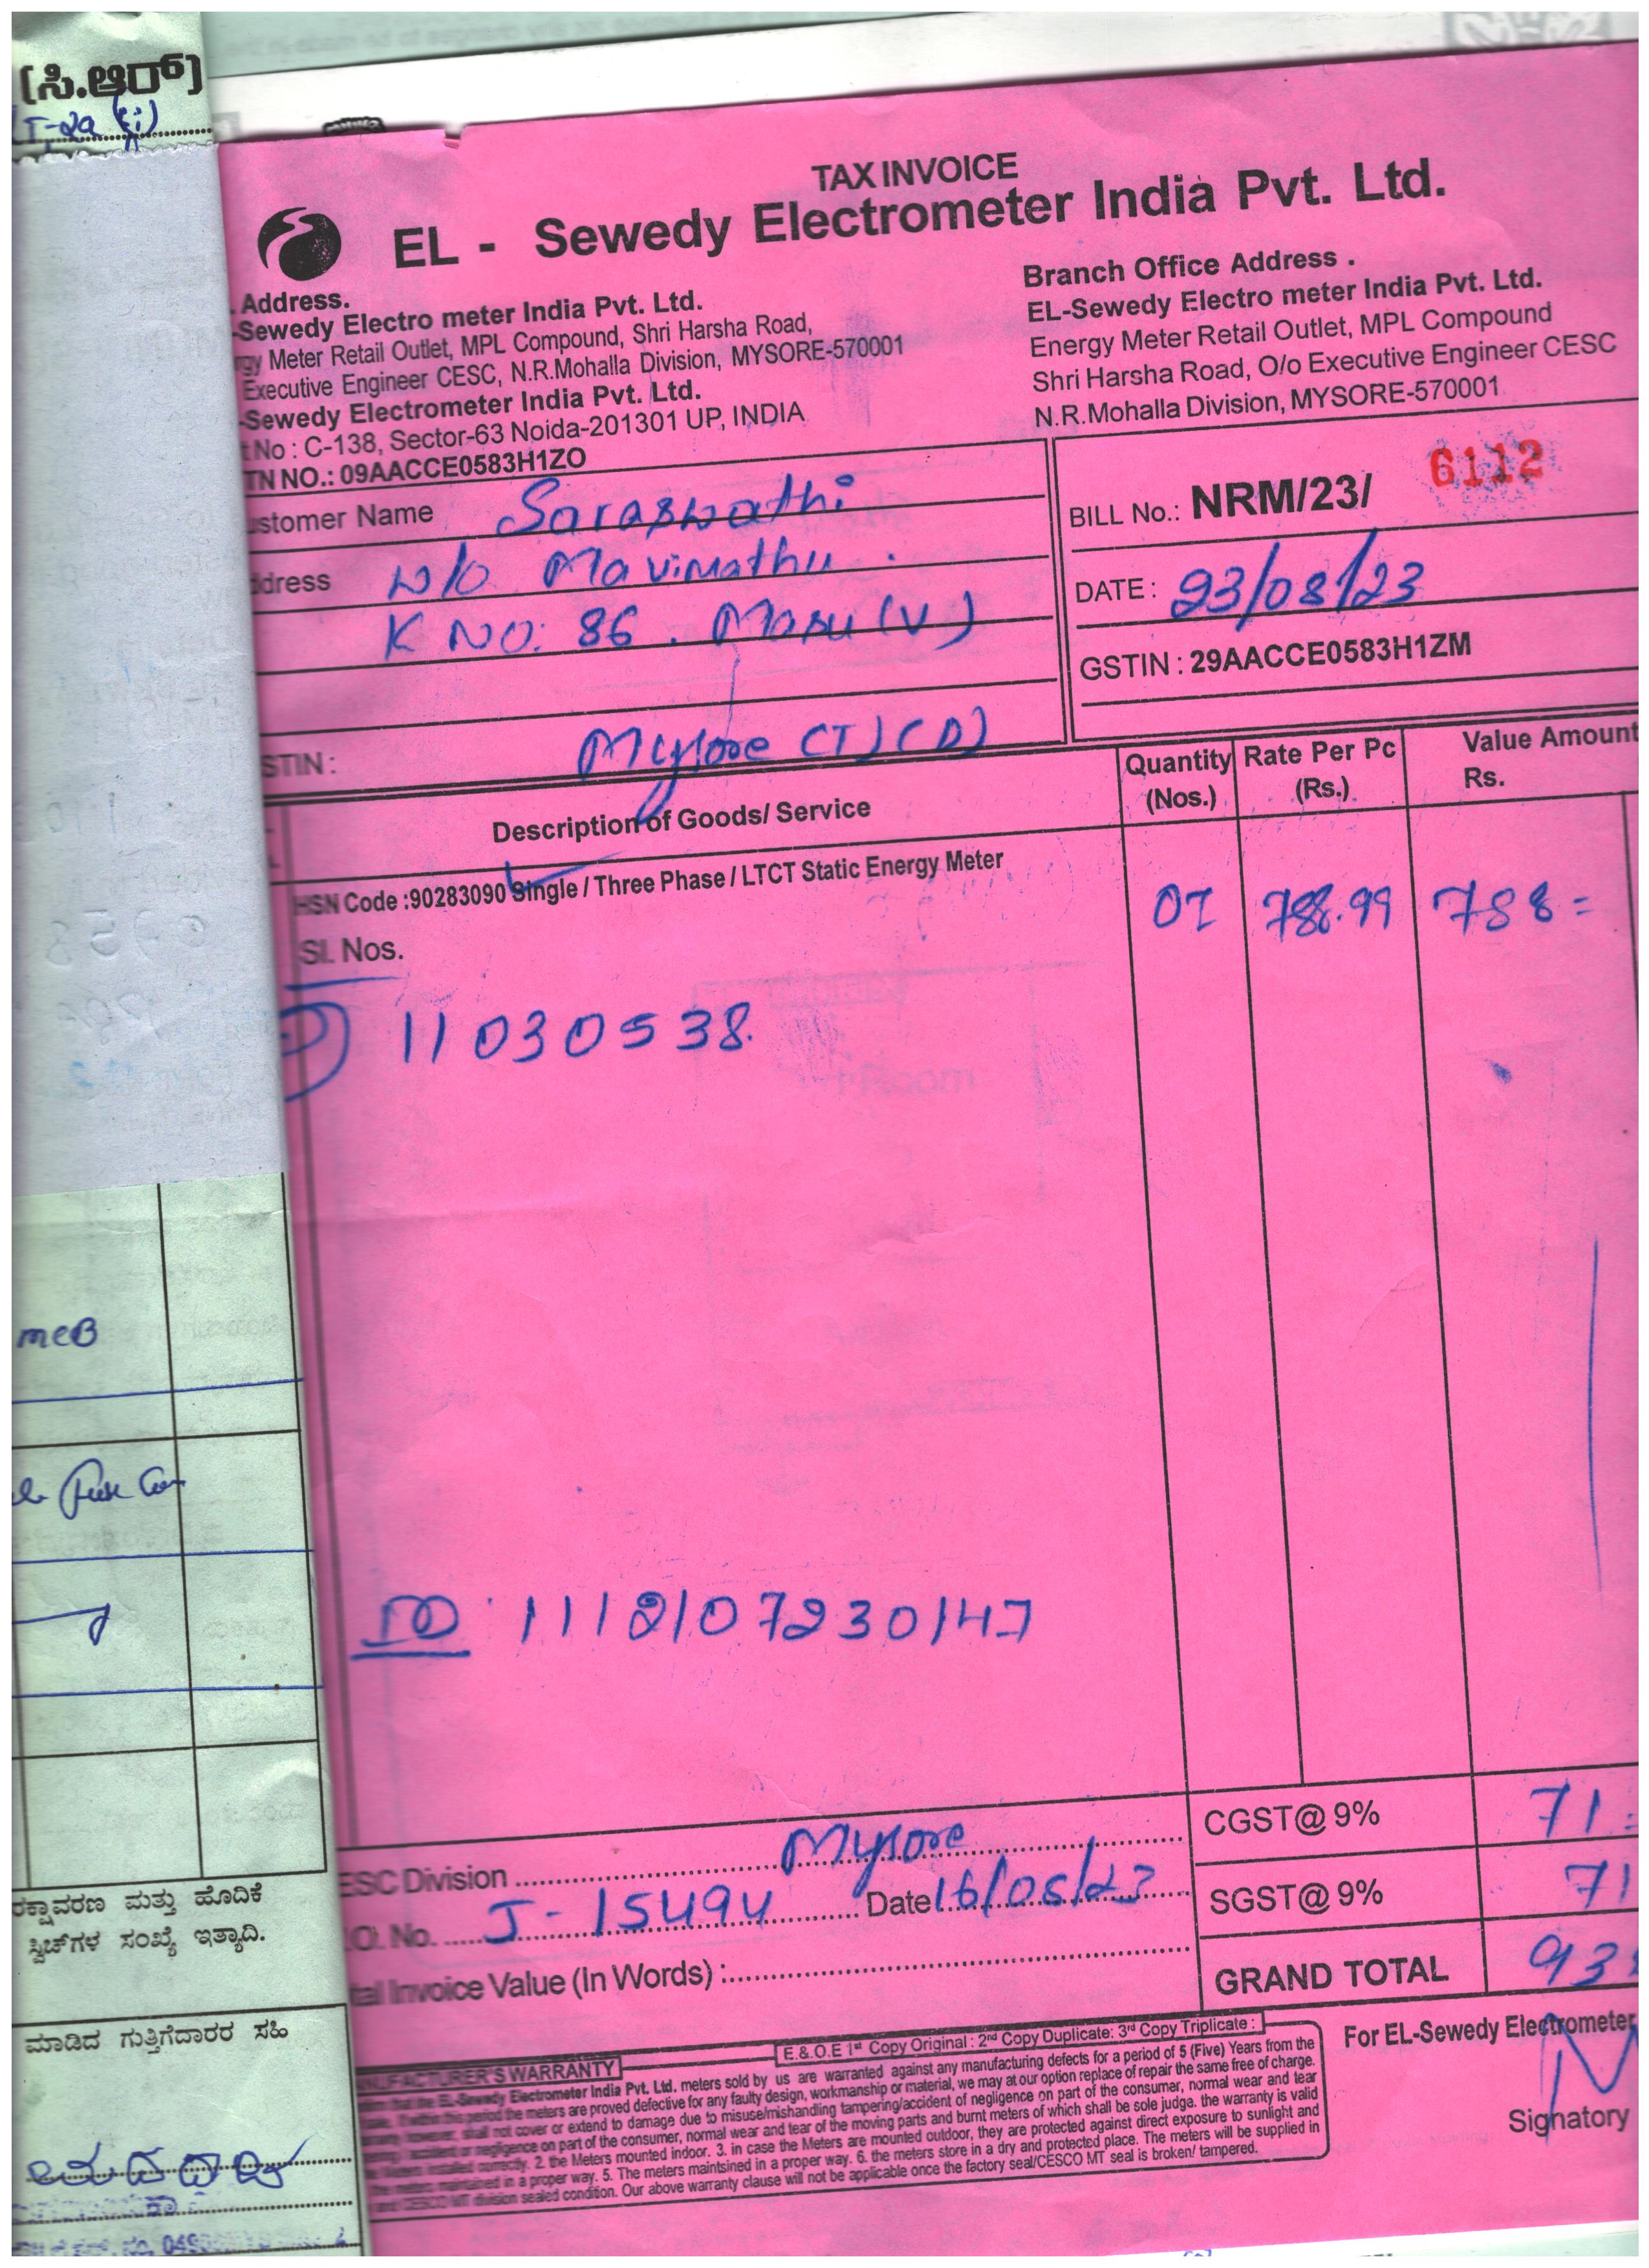 [ಸಿ.ಆರ್]
LT-2a (ii)
TAX INVOICE
EL - Sewedy Electrometer India Pvt. Ltd.
Address.
-Sewedy Electro meter India Pvt. Ltd.
gy Meter Retail Outlet, MPL Compound, Shri Harsha Road,
Executive Engineer CESC, N.R.Mohalla Division, MYSORE-570001
-Sewedy Electrometer India Pvt. Ltd.
t.No : C-138, Sector-63 Noida-201301 UP, INDIA
TN NO.: 09AACCE0583H1ZO
Branch Office Address .
EL-Sewedy Electro meter India Pvt. Ltd.
Energy Meter Retail Outlet, MPL Compound
Shri Harsha Road, O/o Executive Engineer CESC
N.R.Mohalla Division, MYSORE-570001
ustomer Name Saraswathi
ddress w/o Mavimathu .
K NO: 86 . Marsu (V)
STIN : Mysore (T) (D)
BILL No.: NRM/23/ 6112
DATE : 23/08/23
GSTIN : 29AACCE0583H1ZM
Description of Goods/ Service
Quantity (Nos.)
Rate Per Pc (Rs.)
Value Amount Rs.
HSN Code :90283090 Single / Three Phase / LTCT Static Energy Meter
01 788.99 788=
Sl. Nos.
11030538.
ID : 1112107230147
CGST@ 9% 71
SGST@ 9% 71
GRAND TOTAL 93
ESC Division Mysore
.O. No. J-15494 Date 16/08/23
tal Invoice Value (In Words) :
E.& .O.E 1st Copy Original : 2nd Copy Duplicate: 3rd Copy Triplicate :
NUFACTURER'S WARRANTY
EL-Sewedy Electrometer India Pvt. Ltd. meters sold by us are warranted against any manufacturing defects for a period of 5 (Five) Years from the
If within this period the meters are proved defective for any faulty design, workmanship or material, we may at our option replace of repair the same free of charge.
however, shall not cover or extend to damage due to misuse/mishandling tampering/accident of negligence on part of the consumer, normal wear and tear
accident or negligence on part of the consumer, normal wear and tear of the moving parts and burnt meters of which shall be sole judga. the warranty is valid
Meters installed correctly. 2. the Meters mounted indoor. 3. in case the Meters are mounted outdoor, they are protected against direct exposure to sunlight and
the meters maintained in a proper way. 5. The meters maintsined in a proper way. 6. the meters store in a dry and protected place. The meters will be supplied in
and CESCO MT division sealed condition. Our above warranty clause will not be applicable once the factory seal/CESCO MT seal is broken/ tampered.
For EL-Sewedy Electrometer
Signatory
mcB
ರಕ್ಷಾವರಣ ಮತ್ತು ಹೊದಿಕೆ
ಸ್ವಿಚ್‌ಗಳ ಸಂಖ್ಯೆ ಇತ್ಯಾದಿ.
ಮಾಡಿದ ಗುತ್ತಿಗೆದಾರರ ಸಹಿ